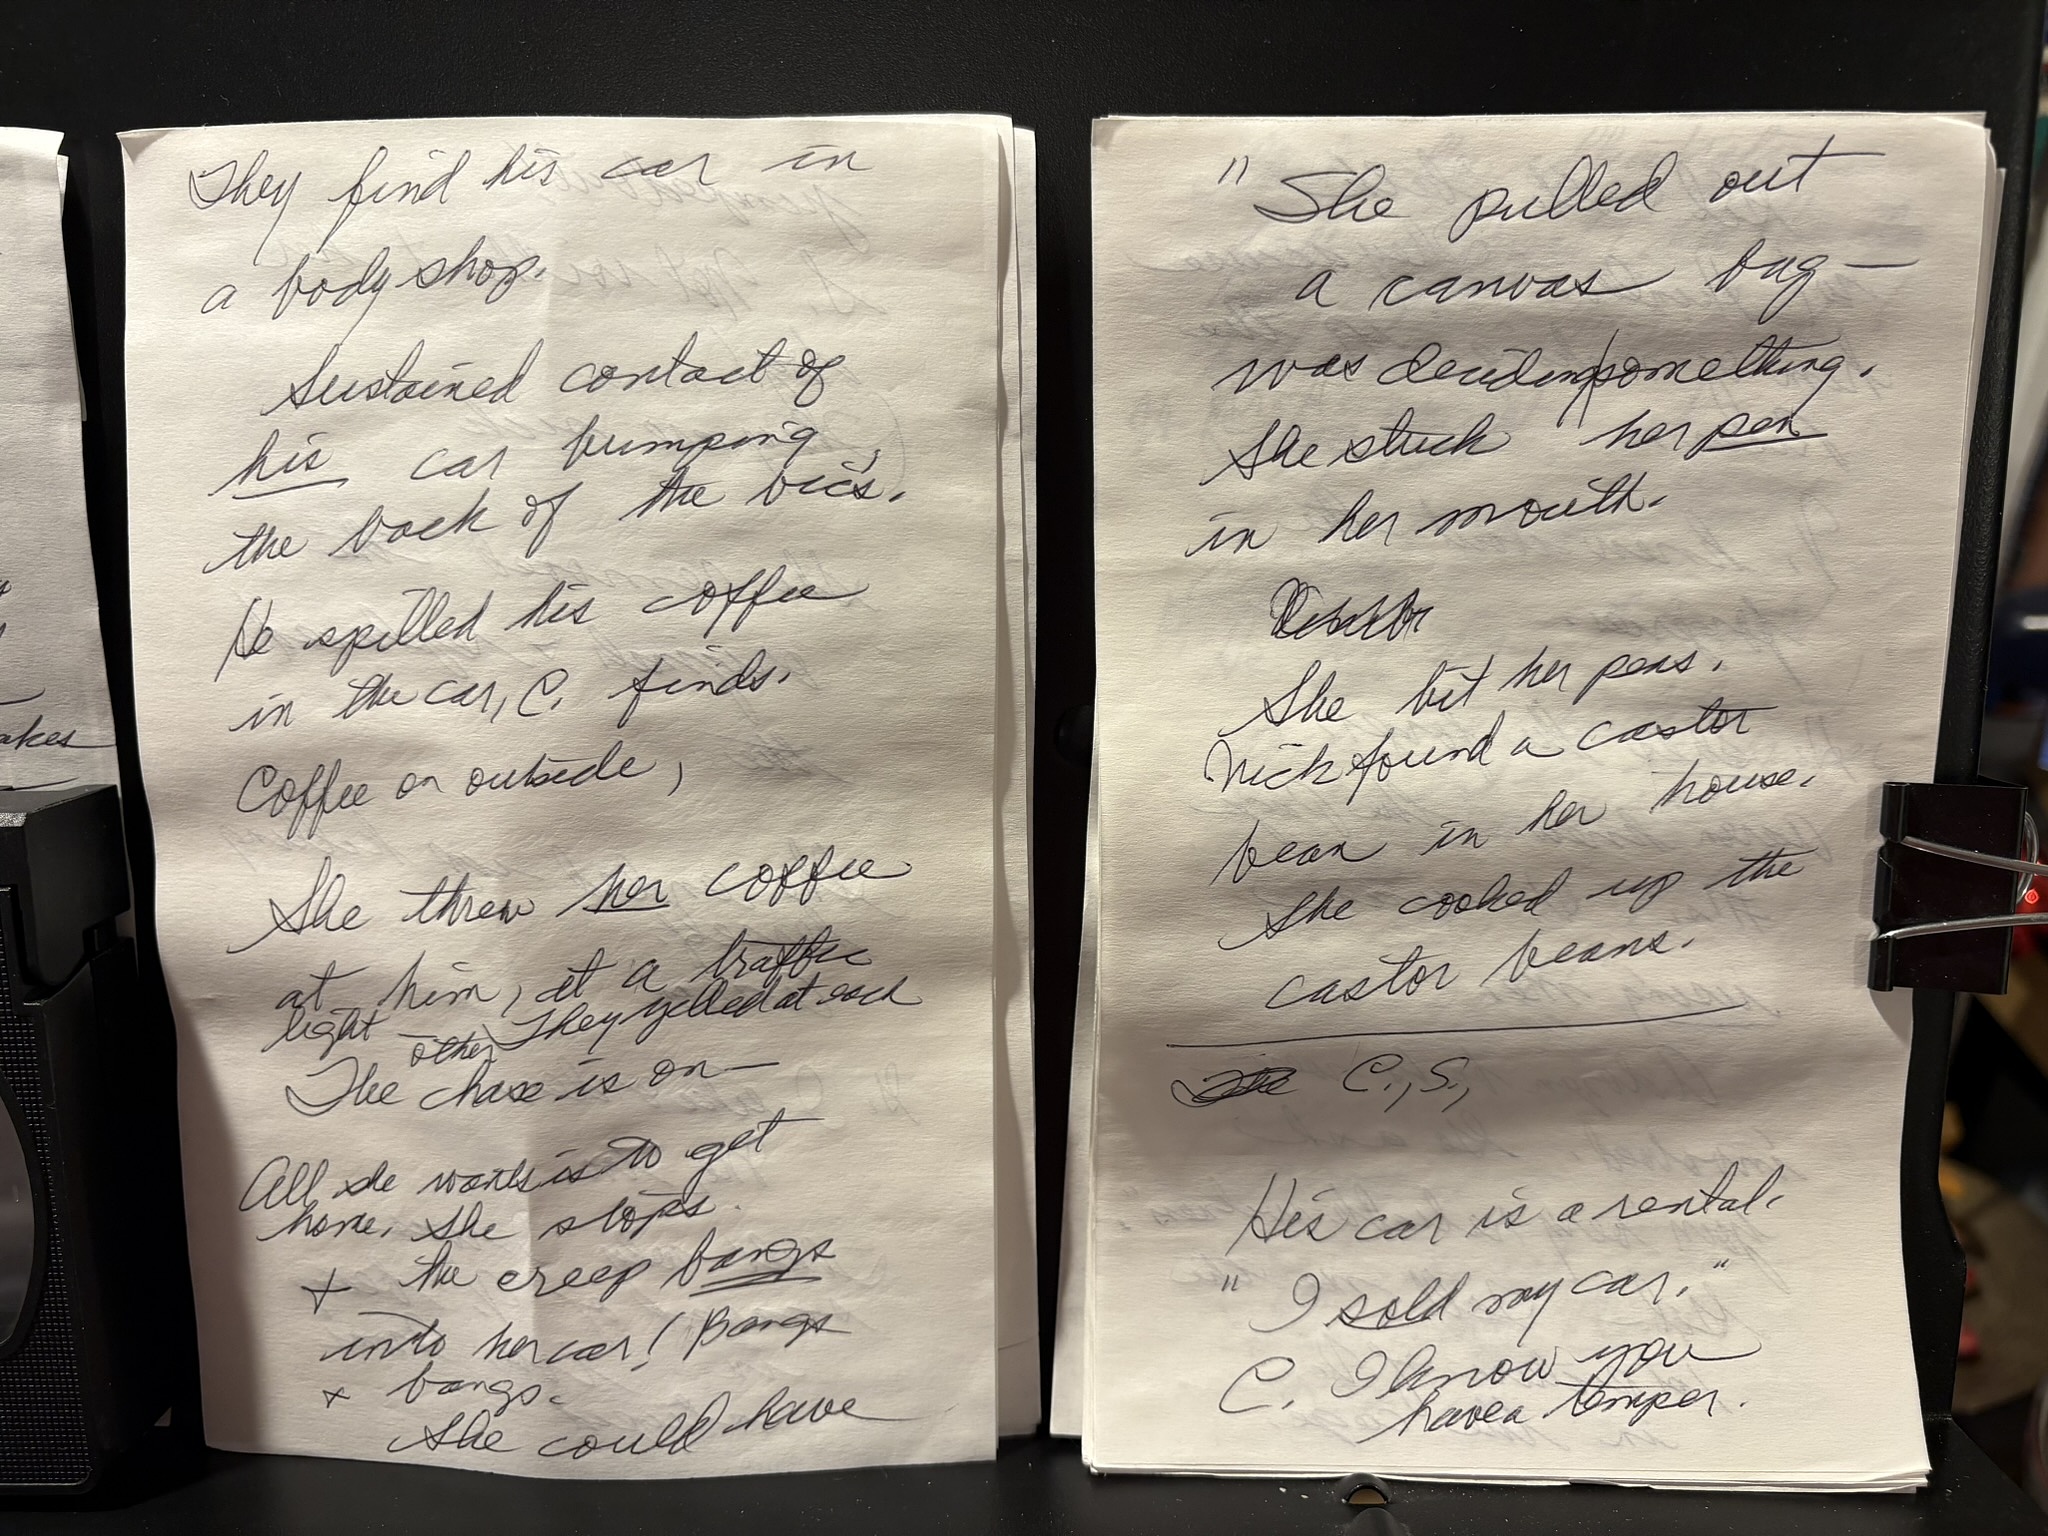 akes
They find his car in
a body shop.
Sustained contact of
his car bumping
the back of the vic's.
He spilled his coffee
in the car, C. finds.
Coffee on outside,
She threw her coffee
at him, at a traffic
light other, They yelled at each
The chase is on—
All she wants is to get
home. She stops.
+ the creep bangs
into her car! Bangs
+ bangs.
She could have
"She pulled out
a canvas bag—
was deciding something.
She stuck her pen
in her mouth.
She bit her pens.
Nick found a castor
bean in her house.
She cooked up the
castor beans.
C., S.,
His car is a rental.
"I sold my car."
C. I know you
have a temper.